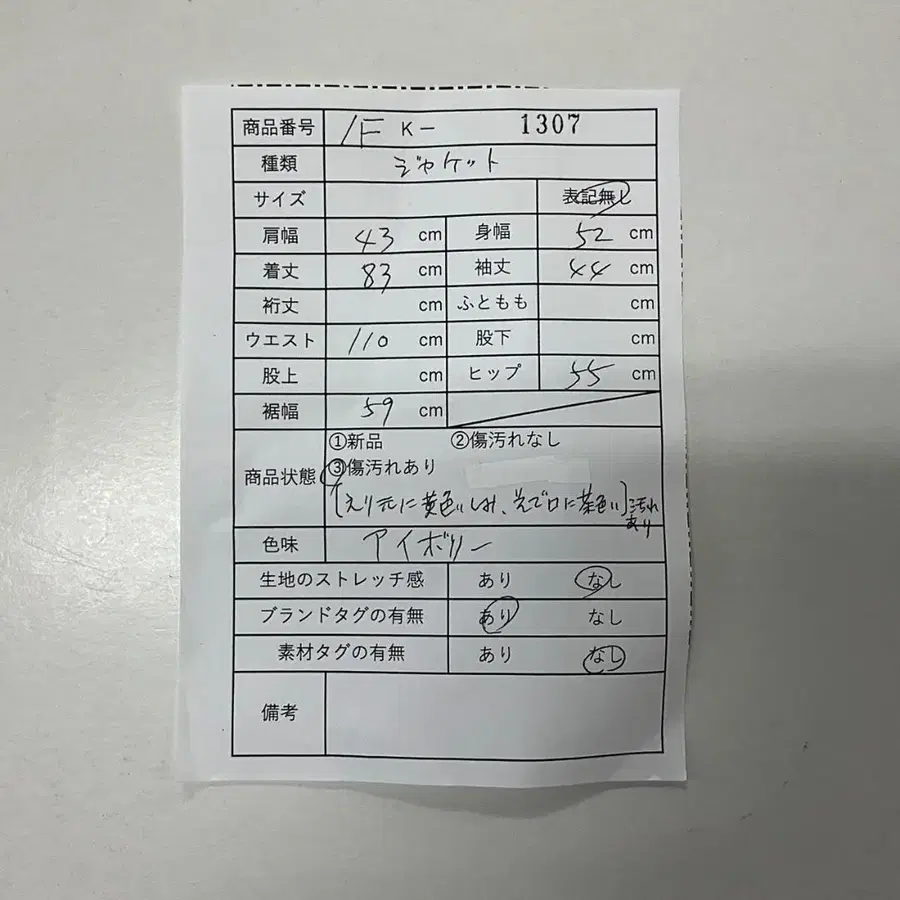 商品番号 1F K- 1307
種類 ジャケット
サイズ 表記無し
肩幅 43 cm 身幅 52 cm
着丈 83 cm 袖丈 44 cm
裄丈 cm ふともも cm
ウエスト 110 cm 股下 cm
股上 cm ヒップ 55 cm
裾幅 59 cm
商品状態 ①新品 ②傷汚れなし
③傷汚れあり
[えり元に黄色いしみ、そで口に茶色い]汚れ
あり
色味 アイボリー
生地のストレッチ感 あり なし
ブランドタグの有無 あり なし
素材タグの有無 あり なし
備考